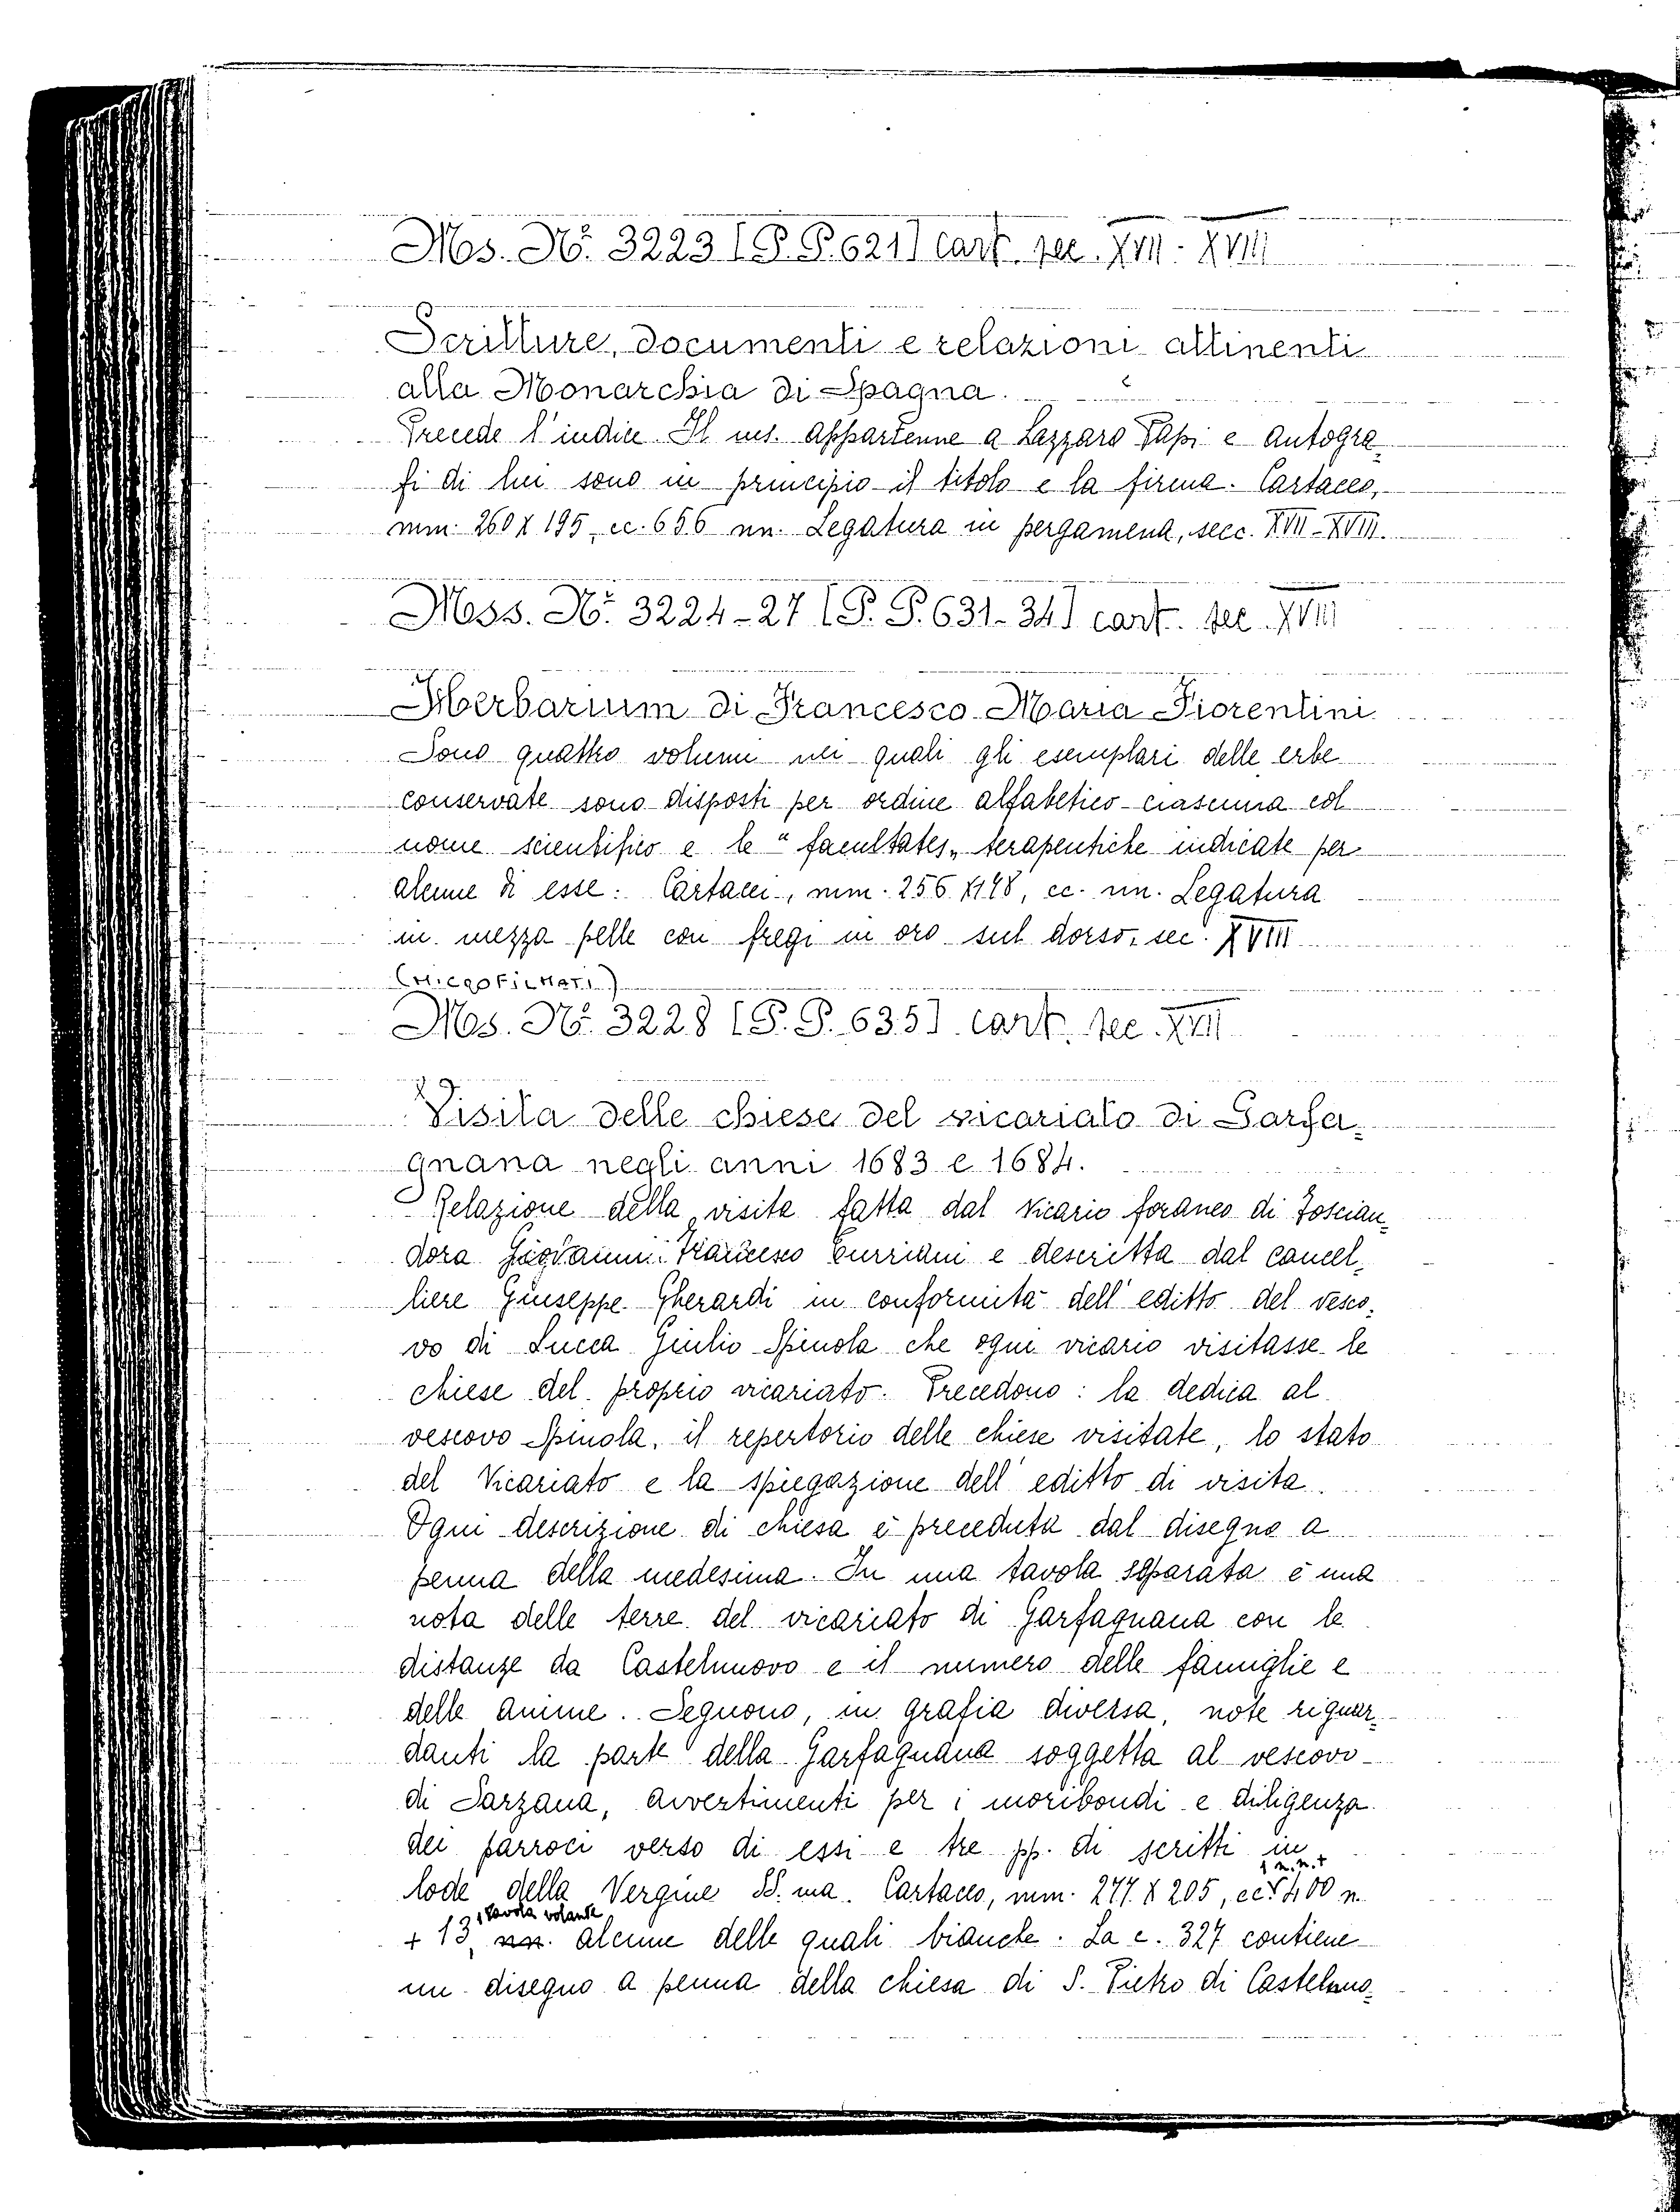 Ms. Nº. 3223 [P. P. 621] cart. sec. XVII - XVIII
Scritture, documenti e relazioni attinenti
alla Monarchia di Spagna.
Precede l'indice. Il ms. appartenne a Lazzaro Papi e autogra-
fi di lui sono in principio il titolo e la firma. Cartaceo,
mm. 260 X 195, cc. 656 nn. Legatura in pergamena, secc. XVII - XVIII.
Mss. Nº. 3224-27 [P. P. 631-34] cart. sec. XVIII
Herbarium di Francesco Maria Fiorentini
Sono quattro volumi nei quali gli esemplari delle erbe
conservate sono disposti per ordine alfabetico ciascuna col
nome scientifico e le "facultates„ terapeutiche indicate per
alcune di esse. Cartacei, mm. 256 X 198, cc. nn. Legatura
in mezza pelle con fregi in oro sul dorso, sec. XVIII
(Microfilmati)
Ms. Nº. 3228 [P. P. 635] cart. sec. XVII
Visita delle chiese del vicariato di Garfa-
gnana negli anni 1683 e 1684.
Relazione della visita fatta dal vicario foraneo di Foscian-
dora Giovanni Francesco Curriani e descritta dal cancel-
liere Giuseppe Gherardi in conformità dell'editto del vesco-
vo di Lucca Giulio Spinola che ogni vicario visitasse le
chiese del proprio vicariato. Precedono: la dedica al
vescovo Spinola, il repertorio delle chiese visitate, lo stato
del Vicariato e la spiegazione dell'editto di visita.
Ogni descrizione di chiesa è preceduta dal disegno a
penna della medesima. In una tavola separata è una
nota delle terre del vicariato di Garfagnana con le
distanze da Castelnuovo e il numero delle famiglie e
delle anime. Seguono, in grafia diversa, note riguar-
danti la parte della Garfagnana soggetta al vescovo
di Sarzana, avvertimenti per i moribondi e diligenza
dei parroci verso di essi e tre pp. di scritti in
lode della Vergine SS.ma. Cartaceo, mm. 277 X 205, cc. 1 n.n. + 400 n.
+ 13, 1 tavola volante nn. alcune delle quali bianche. La c. 327 contiene
un disegno a penna della chiesa di S. Pietro di Castelnuo-